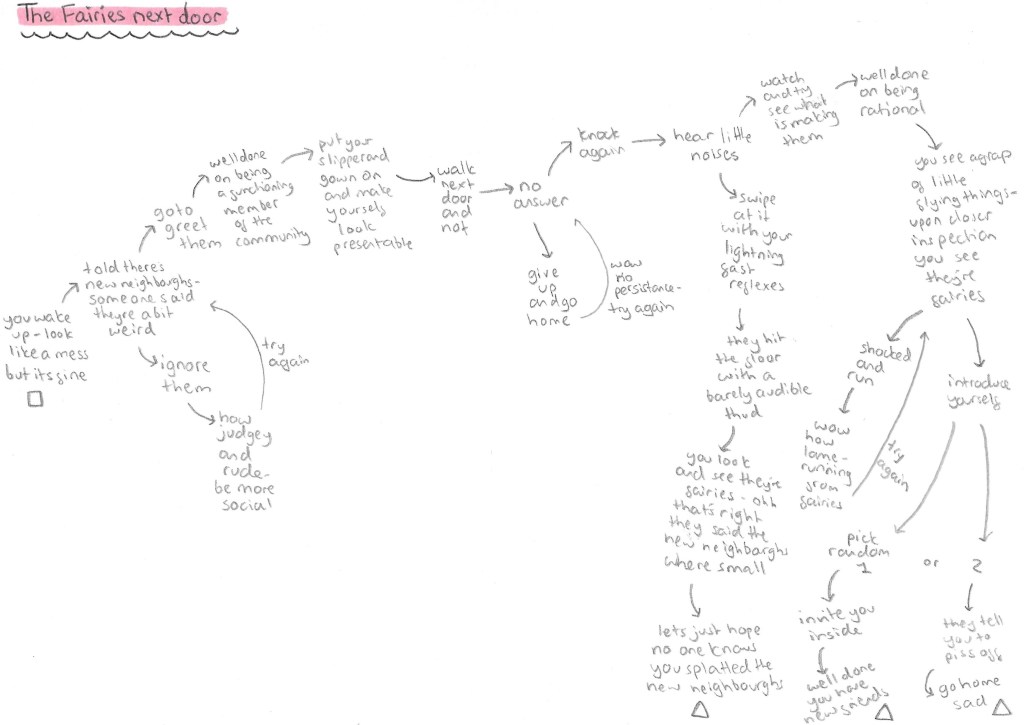 The Fairies next door
you wake
up - look
like a mess
but its fine
told there's
new neighboughs -
someone said
theyre a bit
weird
ignore
them
how
judgey
and
rude -
be more
social
try
again
go to
greet
them
well done
on being
a functioning
member
of the
community
put your
slipper and
gown on
and make
yourself
look
presentable
walk
next
door
and
no
answer
give
up
and go
home
wow
no
persistance -
try again
knock
again
hear little
noises
watch
and try
see what
is making
them
well done
on being
rational
you see a grap
of little
flying things -
upon closer
inspection
you see
they're
fairies
shocked
and
run
wow
how
lame -
running
from
fairies
try
again
introduce
yourself
pick
random
1 or 2
invite you
inside
well done
you have
new friends
they tell
you to
piss off
go home
sad
swipe
at it
with your
lightning
fast
reflexes
they hit
the floor
with a
barely audible
thud
you look
and see they're
fairies - ohh
that's right
they said the
new neighbarghs
where small
lets just hope
no one knows
you splatted the
new neighbourghs